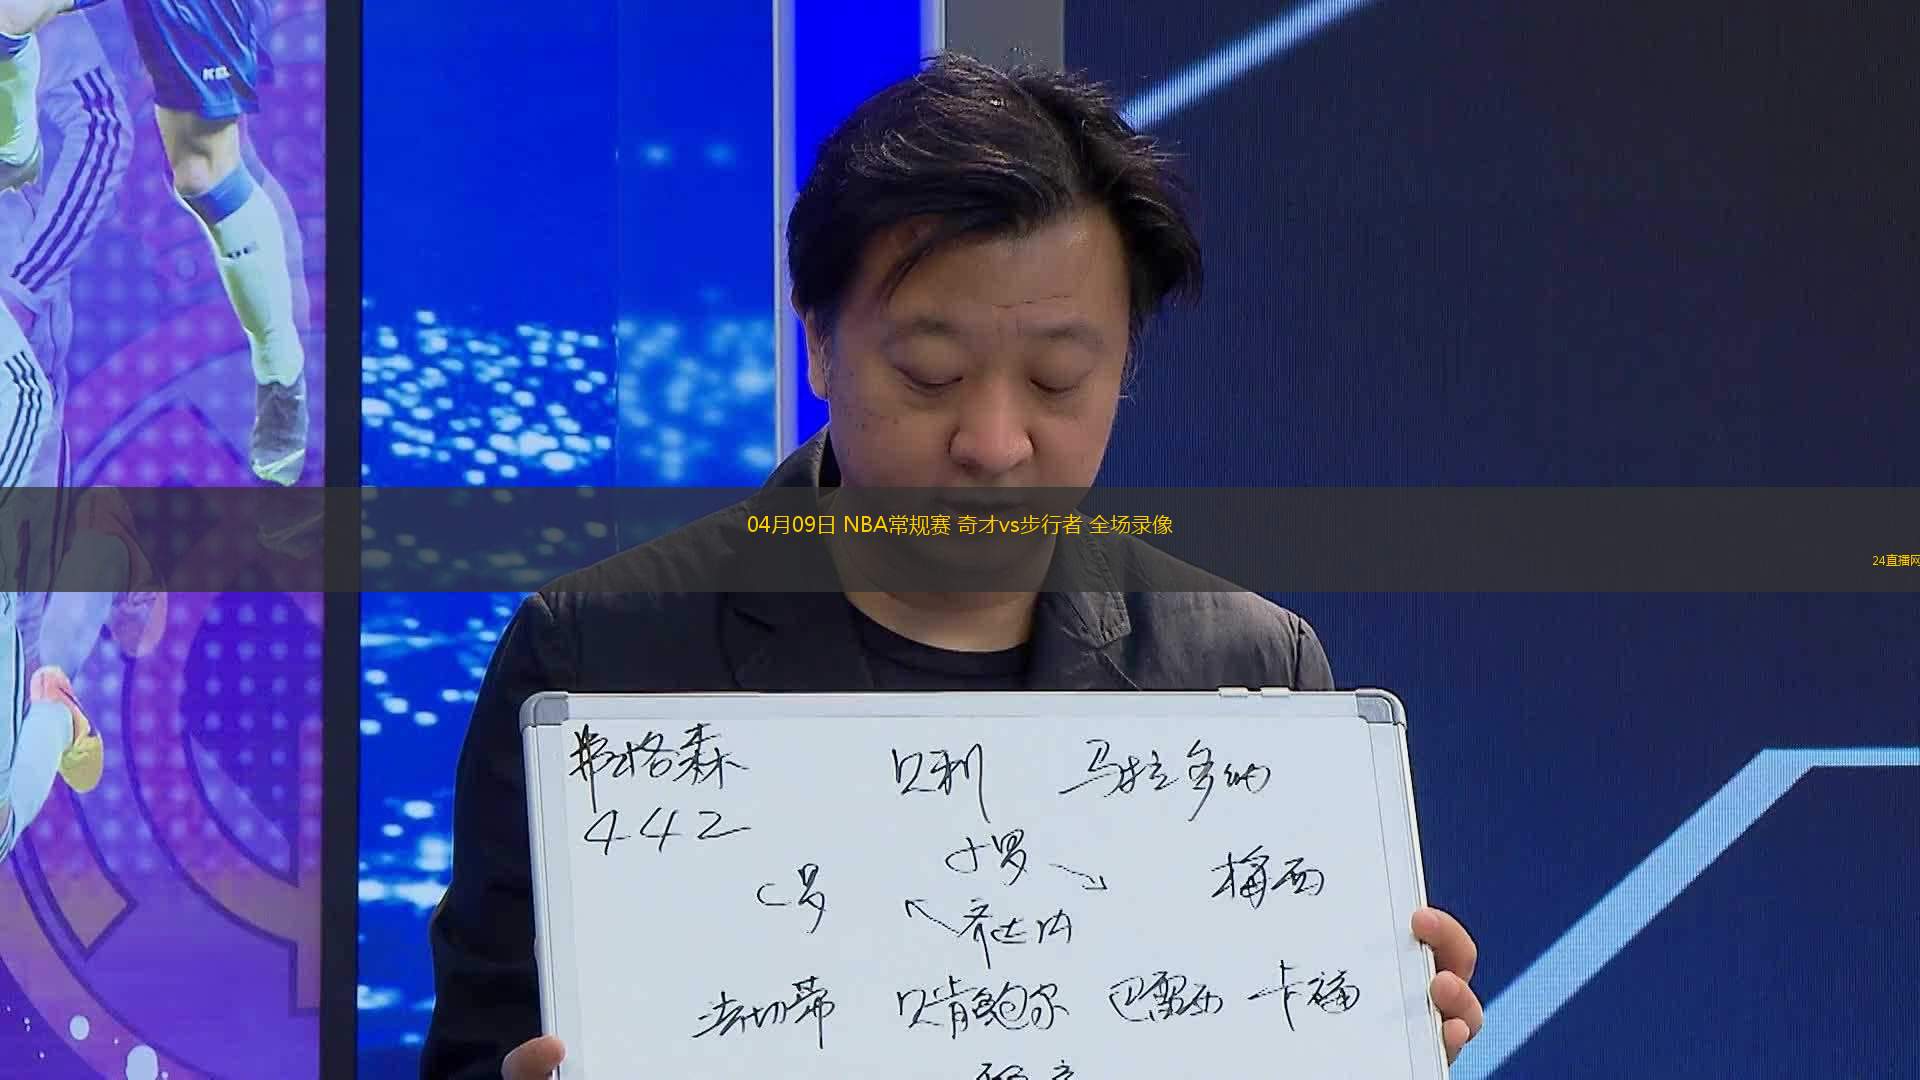 04月09日 NBA常规赛 奇才vs步行者 全场录像
24直播网
弗格森 贝利 马拉多纳
442
小罗
C罗 梅西
齐达内
法切蒂 贝肯鲍尔 巴雷西 卡福